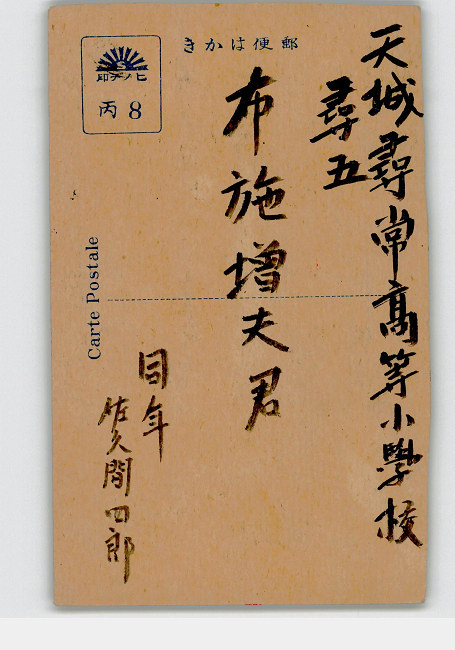 郵便はかき
天城尋常高等小學校
尋五
布施増夫君
同年
佐久間四郎
丙 8
Carte Postale